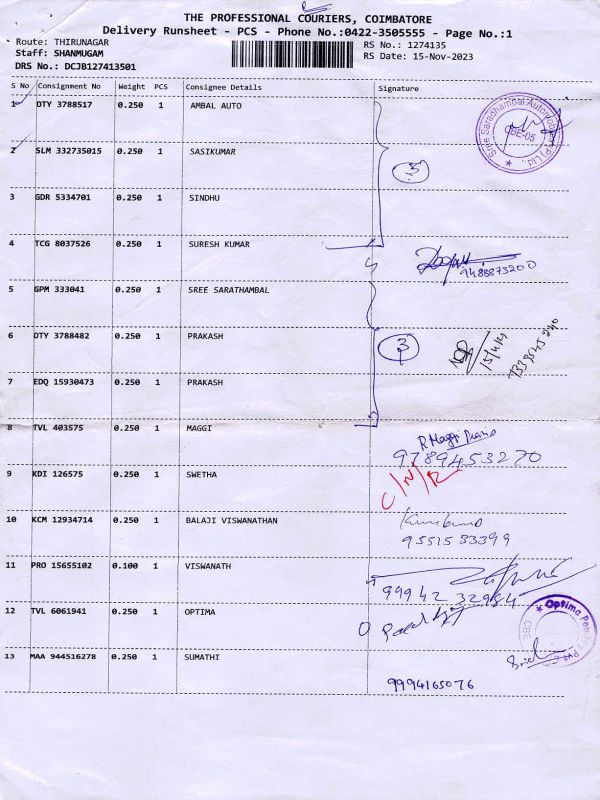 THE PROFESSIONAL COURIERS, COIMBATORE
Delivery Runsheet - PCS - Phone No.:0422-3505555 - Page No.:1
Route: THIRUNAGAR
Staff: SHANMUGAM
DRS No.: DCJB127413501
RS No.: 1274135
RS Date: 15-Nov-2023
S No Consignment No Weight PCS Consignee Details Signature
1 DTY 3788517 0.250 1 AMBAL AUTO
Sree Saradhambal Automobiles (P) Ltd.,
CBE-05
2 SLM 332735015 0.250 1 SASIKUMAR
3
3 GDR 5334701 0.250 1 SINDHU
4 TCG 8037526 0.250 1 SURESH KUMAR
9488873200
5 GPM 333041 0.250 1 SREE SARATHAMBAL
6 DTY 3788482 0.250 1 PRAKASH
3
7 EDQ 15930473 0.250 1 PRAKASH
8 TVL 403575 0.250 1 MAGGI
R Maggi
9789453270
9 KDI 126575 0.250 1 SWETHA
C/N/R
10 KCM 12934714 0.250 1 BALAJI VISWANATHAN
9551533399
11 PRO 15655102 0.100 1 VISWANATH
99942 32984
12 TVL 6061941 0.250 1 OPTIMA
Optima
CBE
13 MAA 944516278 0.250 1 SUMATHI
9994165076